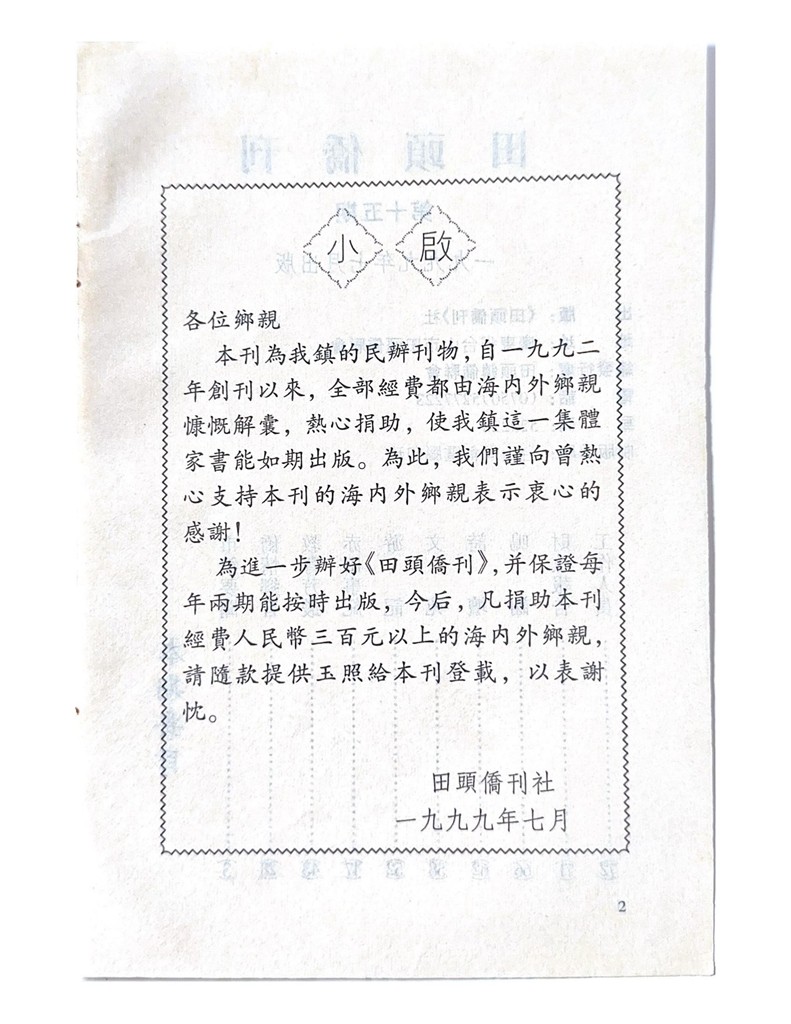 小啟
各位鄉親
本刊為我鎮的民辦刊物，自一九九二
年創刊以來，全部經費都由海内外鄉親
慷慨解囊，熱心捐助，使我鎮這一集體
家書能如期出版。為此，我們謹向曾熱
心支持本刊的海内外鄉親表示衷心的
感謝！
為進一步辦好《田頭僑刊》，并保證每
年兩期能按時出版，今后，凡捐助本刊
經費人民幣三百元以上的海内外鄉親，
請隨款提供玉照給本刊登載，以表謝
忱。
田頭僑刊社
一九九九年七月
2